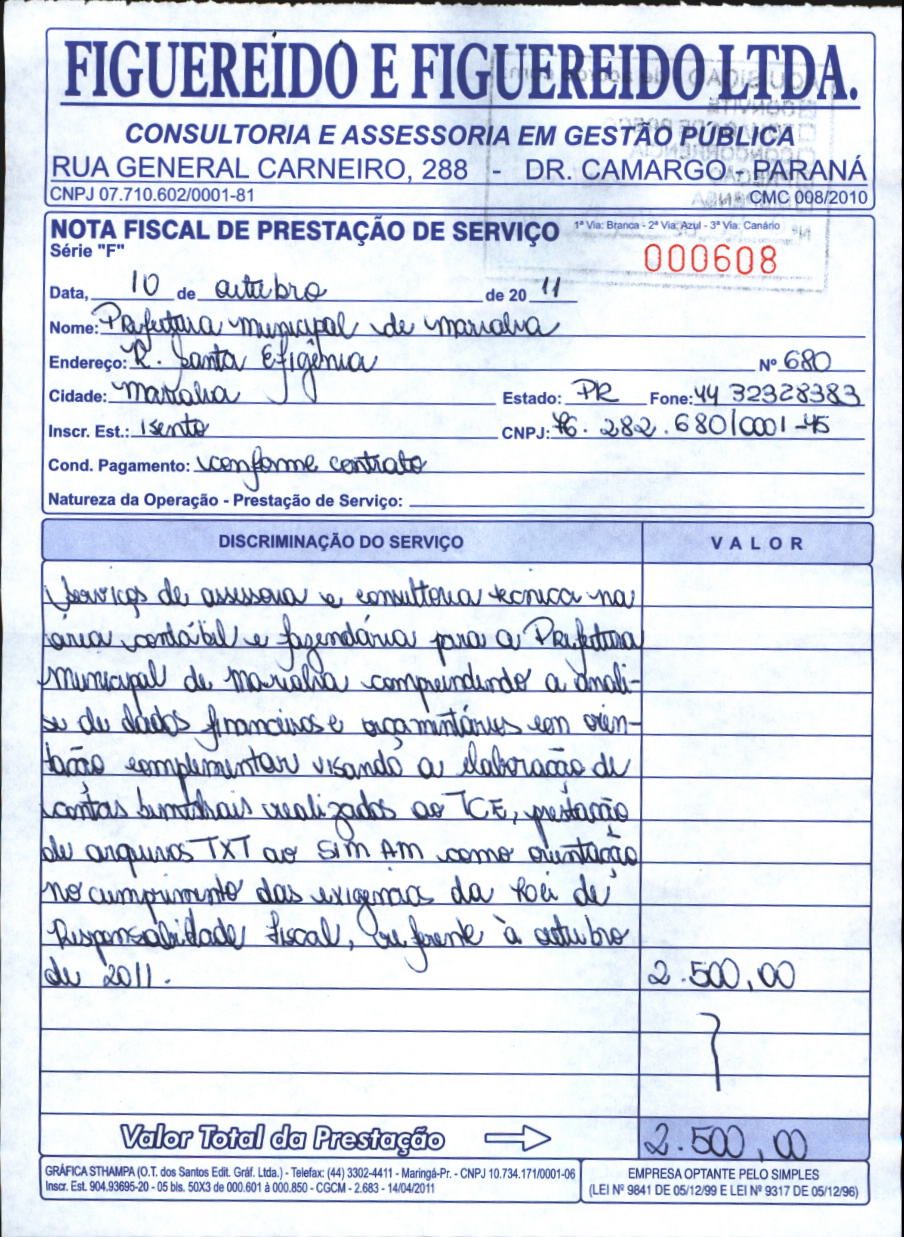 FIGUEREIDO E FIGUEREIDO LTDA.
CONSULTORIA E ASSESSORIA EM GESTÃO PÚBLICA
RUA GENERAL CARNEIRO, 288 - DR. CAMARGO - PARANÁ
CNPJ 07.710.602/0001-81 CMC 008/2010
NOTA FISCAL DE PRESTAÇÃO DE SERVIÇO 1ª Via: Branca - 2ª Via: Azul - 3ª Via: Canário
Série "F" 000608
Data, 10 de outubro de 20 11
Nome: Prefeitura municipal de marialva
Endereço: R. Santa Efigênia Nº 680
Cidade: marialva Estado: PR Fone: 44 32328383
Inscr. Est.: isento CNPJ: 76.282.680/0001-45
Cond. Pagamento: conforme contrato
Natureza da Operação - Prestação de Serviço:
DISCRIMINAÇÃO DO SERVIÇO VALOR
Serviços de assessoria e consultoria tecnica na
área contábil e fazendária para a Prefeitura
Municipal de marialva comprendendo a anali-
se de dados financeiros e orçamentários em orien-
tação complementar visando a elaboração de
contas bimestrais realizados ao TCE, prestação
de arquivos TXT ao SIM AM como orientação
no cumprimento das exigencia da Lei de
Responsabilidade Fiscal, referente à outubro
de 2011. 2.500,00
Valor Total da Prestação 2.500,00
GRÁFICA STHAMPA (O.T. dos Santos Edit. Gráf. Ltda.) - Telefax: (44) 3302-4411 - Maringá-Pr. - CNPJ 10.734.171/0001-06
Inscr. Est. 904.93695-20 - 05 bls. 50X3 de 000.601 à 000.850 - CGCM - 2.683 - 14/04/2011
EMPRESA OPTANTE PELO SIMPLES
(LEI Nº 9841 DE 05/12/99 E LEI Nº 9317 DE 05/12/96)